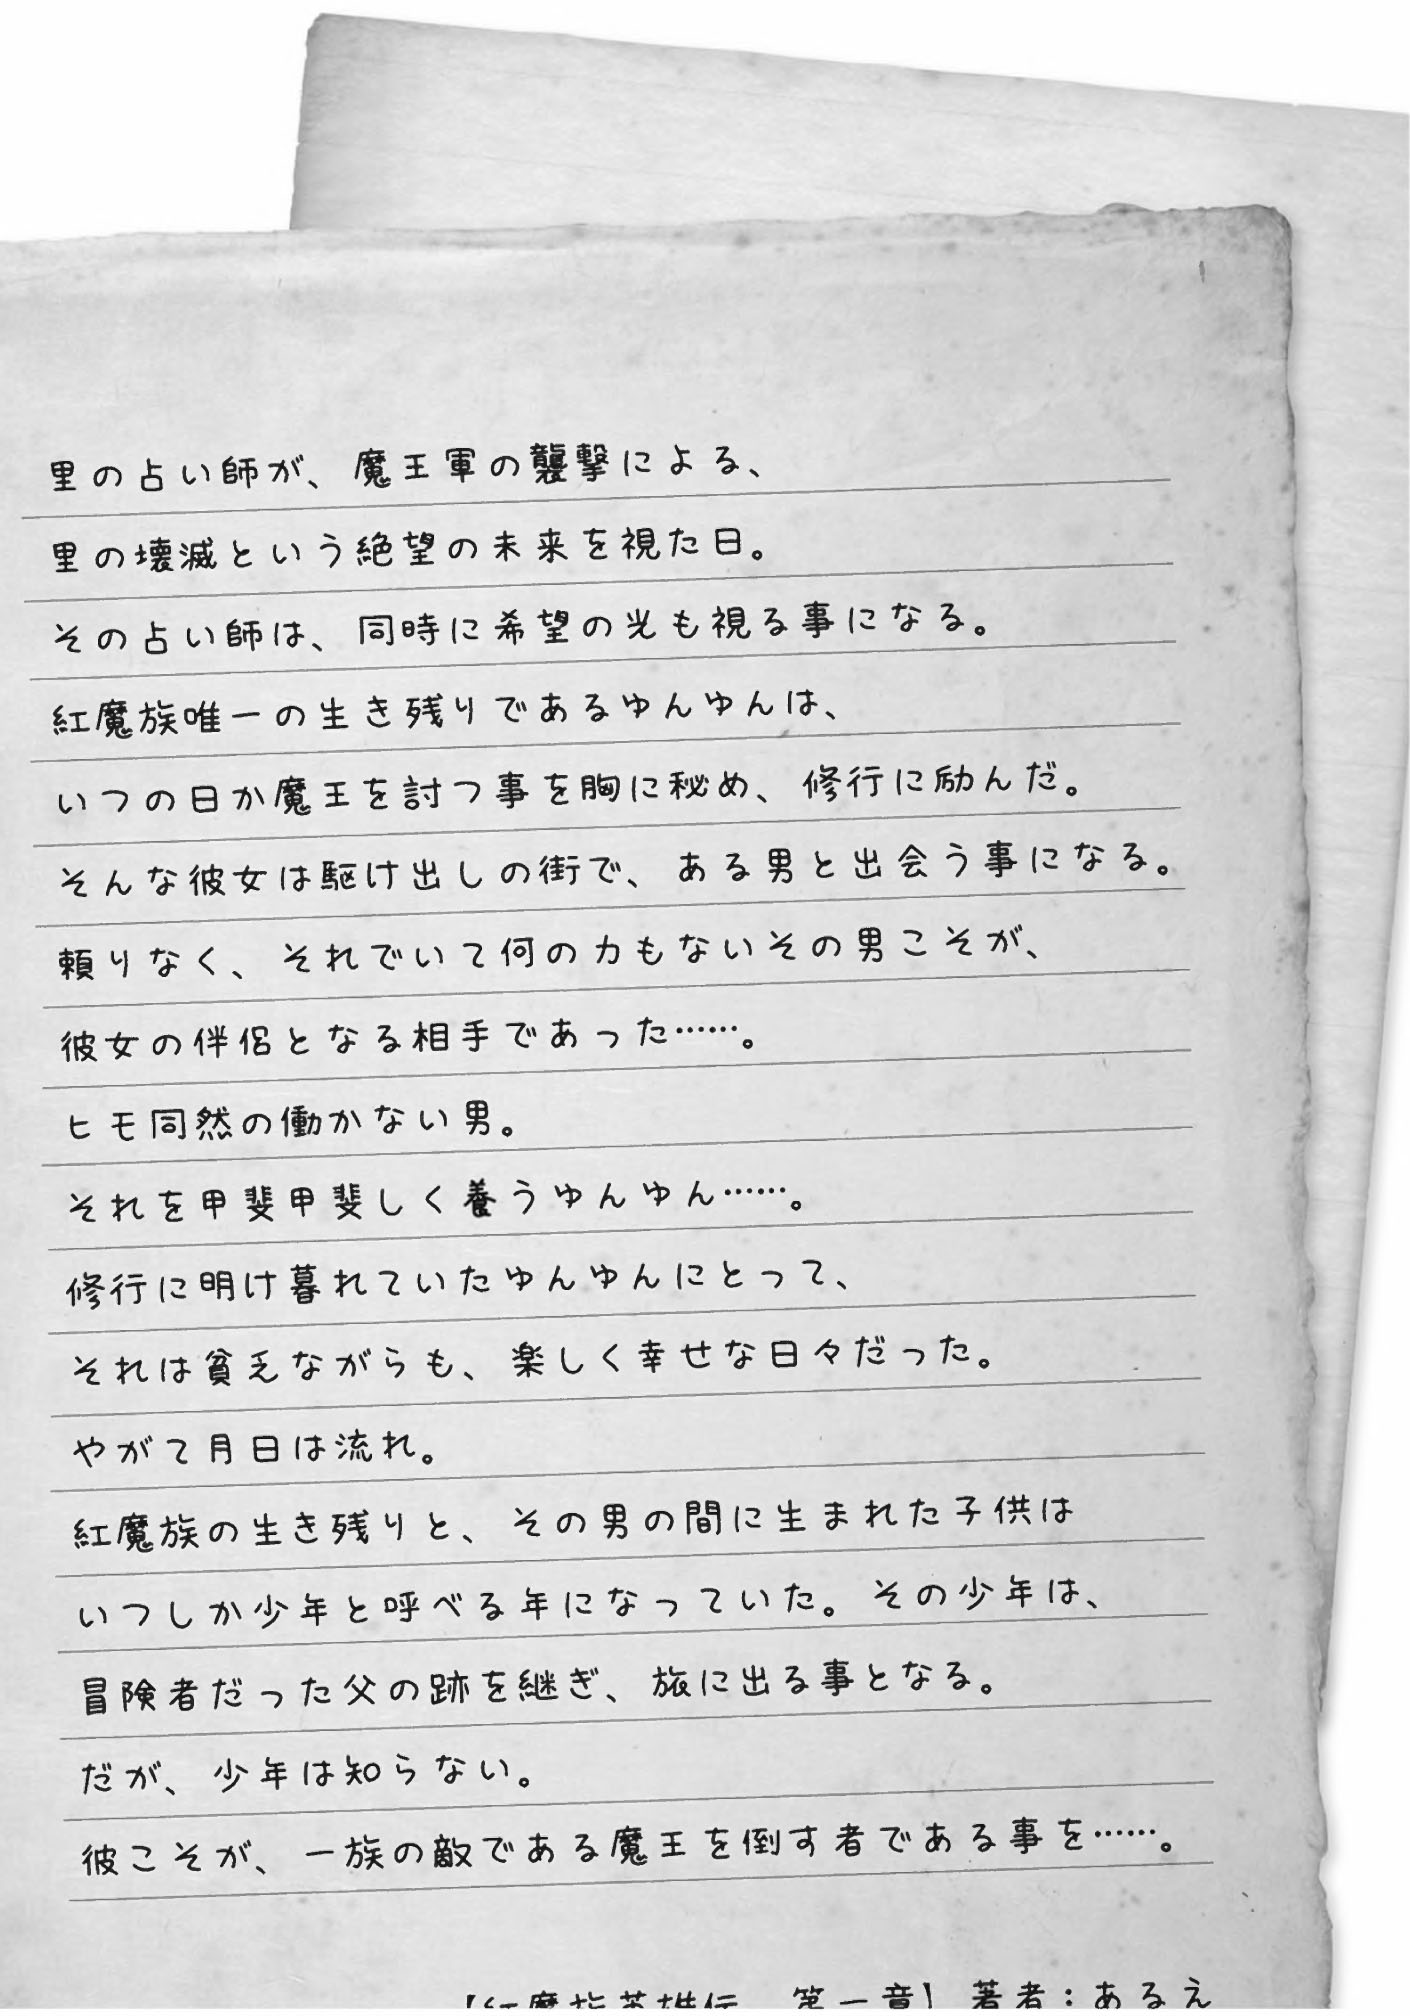 里の占い師が、魔王軍の襲撃による、
里の壊滅という絶望の未来を視た日。
その占い師は、同時に希望の光も視る事になる。
紅魔族唯一の生き残りであるゆんゆんは、
いつの日か魔王を討つ事を胸に秘め、修行に励んだ。
そんな彼女は駆け出しの街で、ある男と出会う事になる。
頼りなく、それでいて何の力もないその男こそが、
彼女の伴侶となる相手であった……。
ヒモ同然の働かない男。
それを甲斐甲斐しく養うゆんゆん……。
修行に明け暮れていたゆんゆんにとって、
それは貧乏ながらも、楽しく幸せな日々だった。
やがて月日は流れ。
紅魔族の生き残りと、その男の間に生まれた子供は
いつしか少年と呼べる年になっていた。その少年は、
冒険者だった父の跡を継ぎ、旅に出る事となる。
だが、少年は知らない。
彼こそが、一族の敵である魔王を倒す者である事を……。
【紅魔族英雄伝　第一章】著者：あるえ